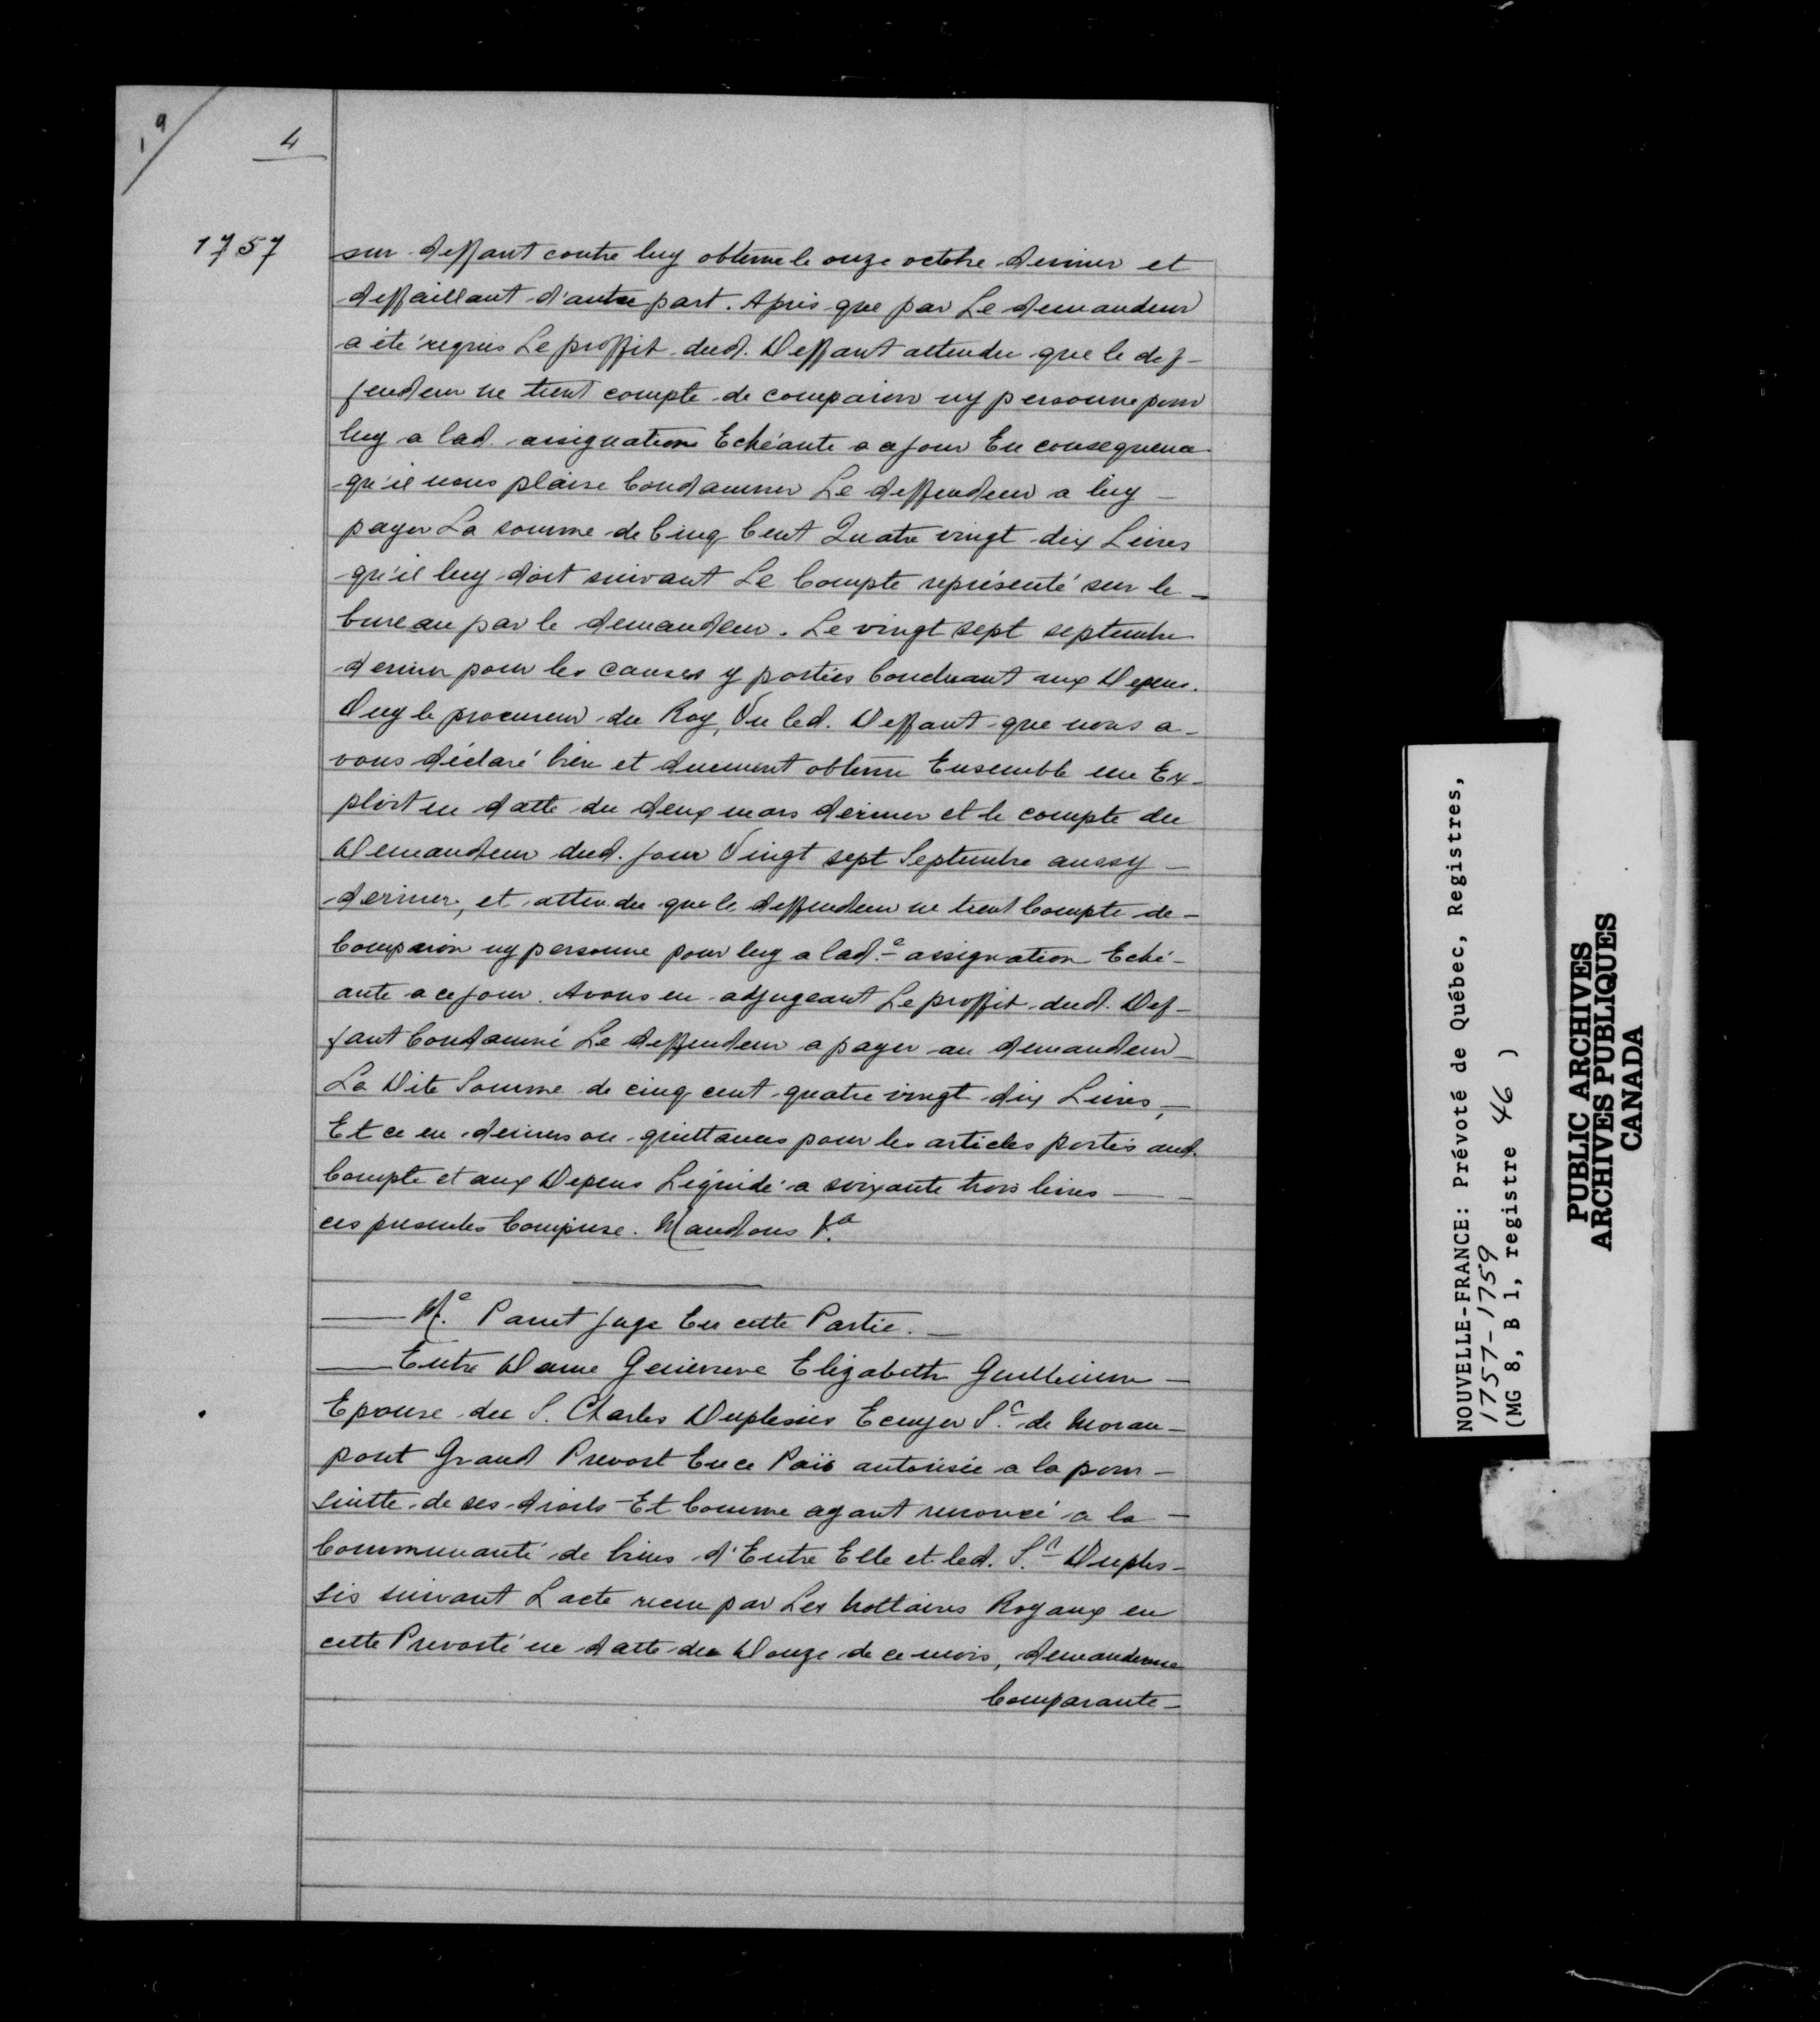 19
4
1757
sur deffaut contre luy obtenu le onze octobre dernier et
deffaillant d'autre part. Après que par Le demandeur
a été requis Le proffit dud. Deffaut attendu que le def-
fendeur ne tient compte de comparoir ny personne pour
luy a lad. assignation Echéante a ce jour En consequence
qu'il nous plaise Condamner Le deffendeur a luy -
payer La somme de Cinq Cent Quatre vingt dix Livres
qu'il luy doit suivant Le Compte représenté sur le -
bureau par le demandeur. Le vingt sept septembre
dernier pour les causes y portées Concluant aux Depens.
Ouy le procureur du Roy, Vu led. Deffaut que nous a-
vons déclaré bien et duement obtenu Ensemble un Ex-
ploit en datte du deux mars dernier et le compte du
Demandeur dud. jour Vingt sept Septembre aussy -
dernier, et attendu que le deffendeur ne tient Compte de -
Comparoir ny personne pour luy a lad.e assignation Eché-
ante a ce jour. Avons en adjugeant Le proffit dud. Def-
faut Condamné Le deffendeur a payer au demandeur -
La Dite Somme de cinq cent quatre vingt dix Livres, -
Et ce en deniers ou quittances pour les articles portés aud.
Compte et aux Depens Liquidé a soixante trois livres - -
ces presentes Comprise. Mandons V.a
— M.e Panet Juge En cette Partie. -
— Entre Dame Genevieve Elizabeth Guillimin -
Epouse du S. Charles Duplessis Ecuyer S.r de Moran-
pont Grand Prevost En ce Païs autorisée a la pour -
suitte de ses droits - Et Comme ayant renoncé a la -
Communauté de biens d'Entre Elle et led. S.r Duples-
sis suivant L acte recu par Les Nottaires Royaux en
cette Prevosté en datte du Douze de ce mois, demanderesse
Comparante -
NOUVELLE-FRANCE: Prévoté de Québec, Registres,
1757-1759
(MG 8, B 1, registre 46 )
PUBLIC ARCHIVES
ARCHIVES PUBLIQUES
CANADA